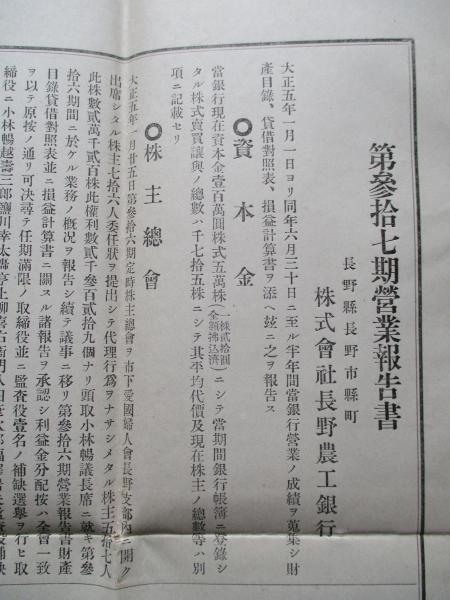 第參拾七期營業報告書
長野縣長野市縣町
株式會社長野農工銀行
大正五年一月一日ヨリ同年六月三十日ニ至ル半年間當銀行營業ノ成績ヲ蒐集シ財
產目錄、貸借對照表、損益計算書ヲ添ヘ玆ニ之ヲ報告ス
◎資本金
當銀行現在資本金壹百萬圓株式五萬株(一株貳拾圓全額拂込濟)ニシテ當期間銀行帳簿ニ登錄シ
タル株式賣買讓與ノ總數ハ千七十五株ニシテ其平均代價及現在株主ノ總數等ハ別
項ニ記載セリ
◎株主總會
大正五年一月廿五日第參拾六期定時株主總會ヲ市下愛國婦人會長野支部內ニ開ク
出席シタル株主七拾六人委任狀ヲ提出シテ代理行爲ヲナサシメタル株主五拾七人
此株數貳萬千貳百株此權利數貳千參百貳拾九個ナリ頭取小林暢議長席ニ就キ第參
拾六期間ニ於ケル業務ノ槪況ヲ報告シ續テ議事ニ移リ第參拾六期營業報告書財產
目錄貸借對照表並ニ損益計算書ニ關スル諸報告ヲ承認シ利益金分配按ハ全會一致
ヲ以テ原按ノ通リ可决尋テ任期滿限ノ取締役並ニ監査役壹名ノ補缺選擧ヲ行ヒ取
締役ニ小林暢越濤三郎鹽川幸太